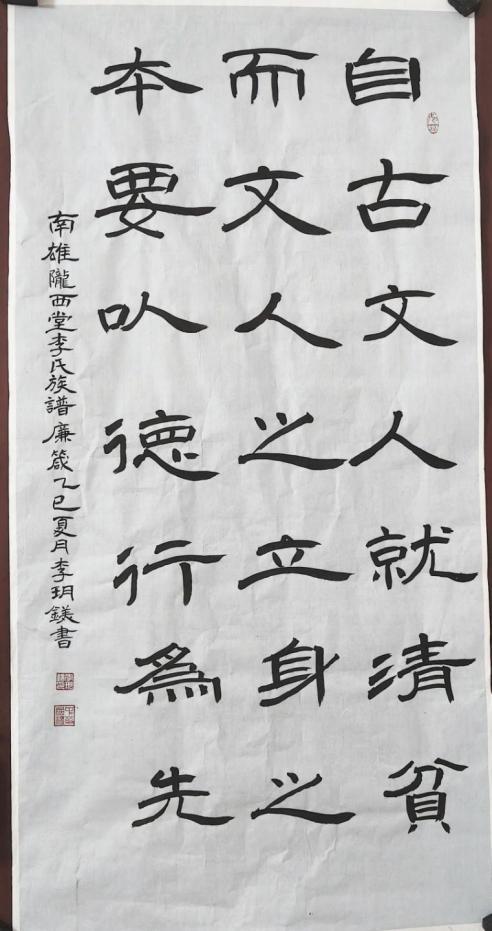 自古文人就清貧
而文人之立身之
本要㕥德行為先
南雄隴西堂李氏族譜廉箴乙巳夏月李玥鎂書